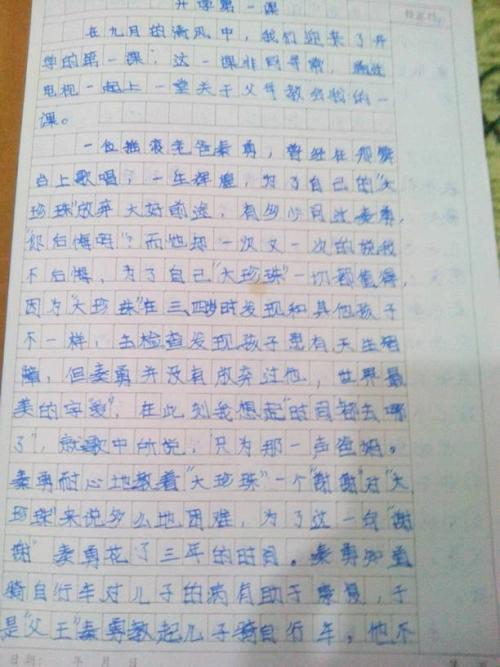 开学第一课
在九月的清风中，我们迎来了开
学的第一课，这一课非同寻常，通过
电视一起上一堂关于父母教给我的一
课。
一位摇滚老爸秦勇，曾经在那舞
台上歌唱，一生辉煌，为了自己的"大
珍珠"放弃大好前途，有多少同次秦勇，
"你后悔吗"？而他却一次又一次的说我
不后悔，为了自己"大珍珠"一切都值得，
因为"大珍珠"在三、四岁时发现和其他孩子
不一样，去检查发现孩子患有天生
障，但秦勇并没有放弃过他，世界最
美的字"爱"，在此刻我想起"时间都去哪
了"，就歌中所说，"只为那一声爸妈。
秦勇耐心地教着"大珍珠"一个"谢谢"对"大
珍珠"来说多么地困难，为了这一句"谢
谢"秦勇花了三年的时间。秦勇知道
骑自行车对儿子的病有助于康复，于
是"父王"秦勇教起儿子骑自行车，他不
日期： 年 月 日